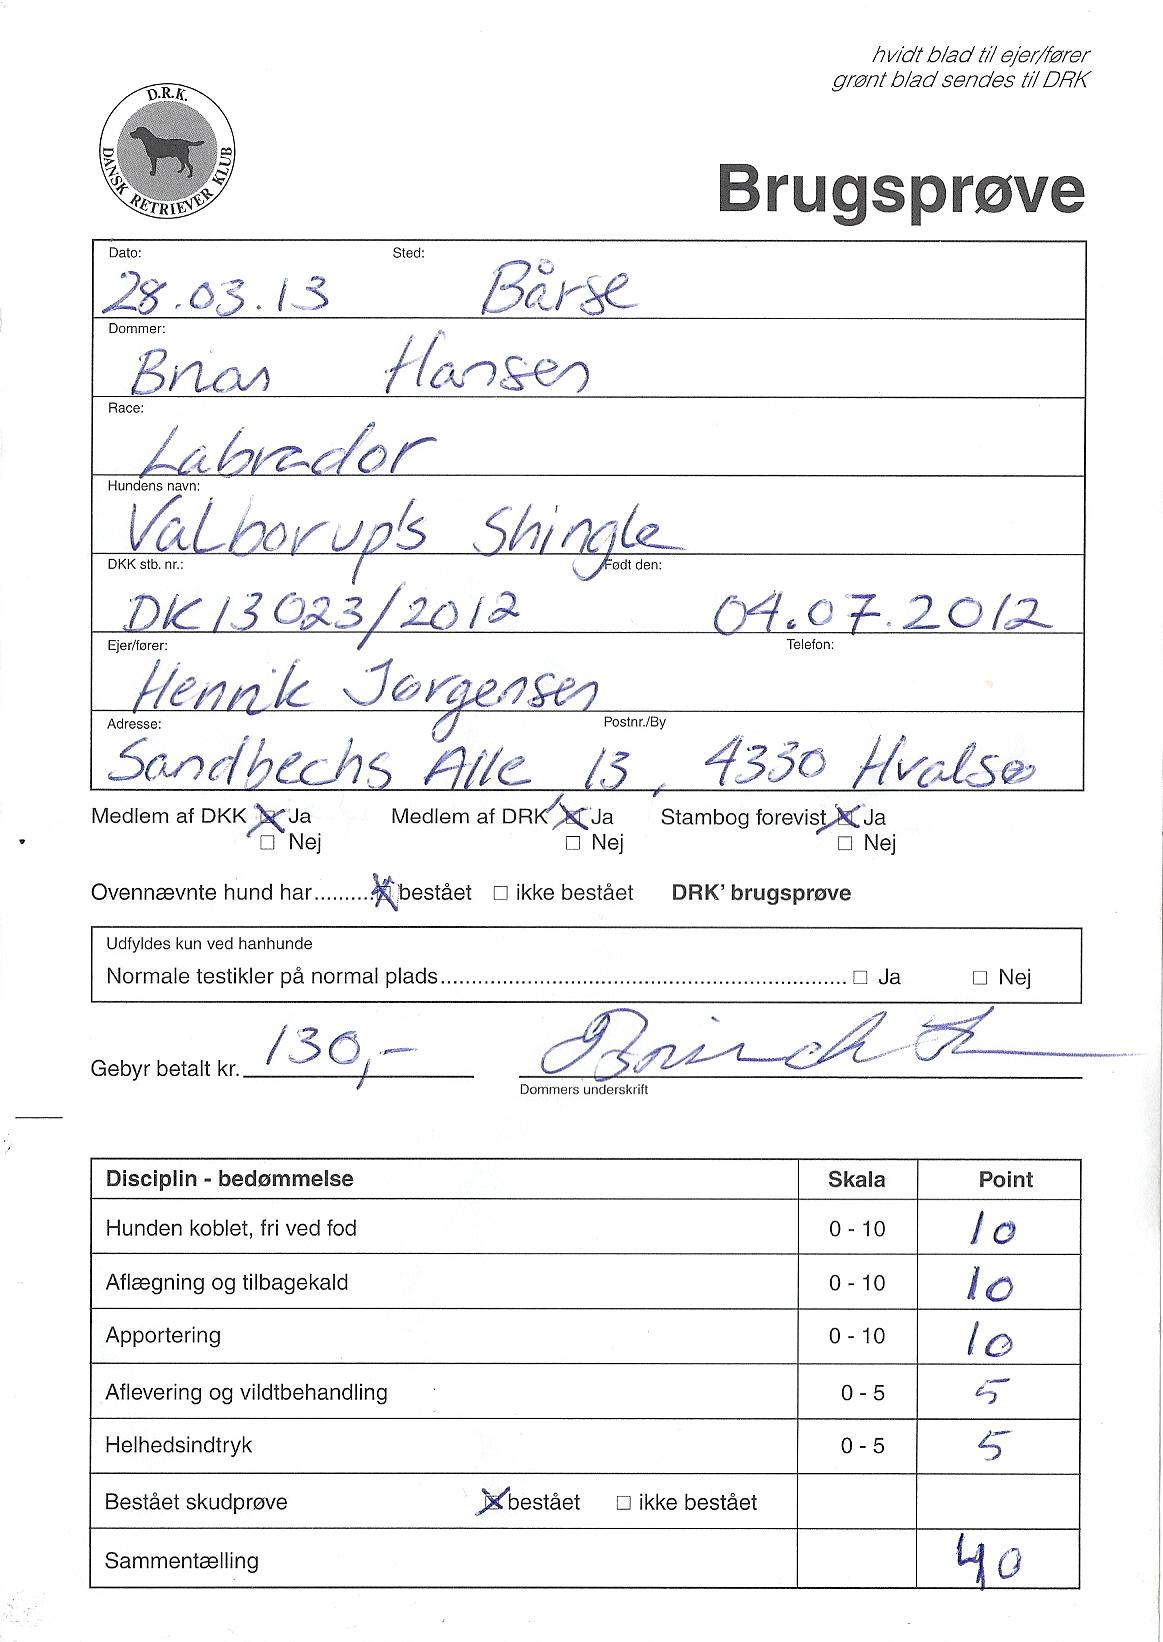 hvidt blad til ejer/fører
grønt blad sendes til DRK
D.R.K.
DANSK RETRIEVER KLUB
Brugsprøve
Dato: Sted:
28.03.13 Bårse
Dommer:
Brian Hansen
Race:
Labrador
Hundens navn:
Valborup's Shingle
DKK stb. nr.: Født den:
DK13023/2012 04.07.2012
Ejer/fører: Telefon:
Henrik Jørgensen
Adresse: Postnr./By
Sandbechs Alle 13, 4330 Hvalsø
Medlem af DKK Ja Medlem af DRK Ja Stambog forevist Ja
Nej Nej Nej
Ovennævnte hund har.......... bestået ikke bestået DRK' brugsprøve
Udfyldes kun ved hanhunde
Normale testikler på normal plads.................................................................. Ja Nej
Gebyr betalt kr. 130,-
Dommers underskrift
Disciplin - bedømmelse Skala Point
Hunden koblet, fri ved fod 0 - 10 10
Aflægning og tilbagekald 0 - 10 10
Apportering 0 - 10 10
Aflevering og vildtbehandling 0 - 5 5
Helhedsindtryk 0 - 5 5
Bestået skudprøve bestået ikke bestået
Sammentælling 40